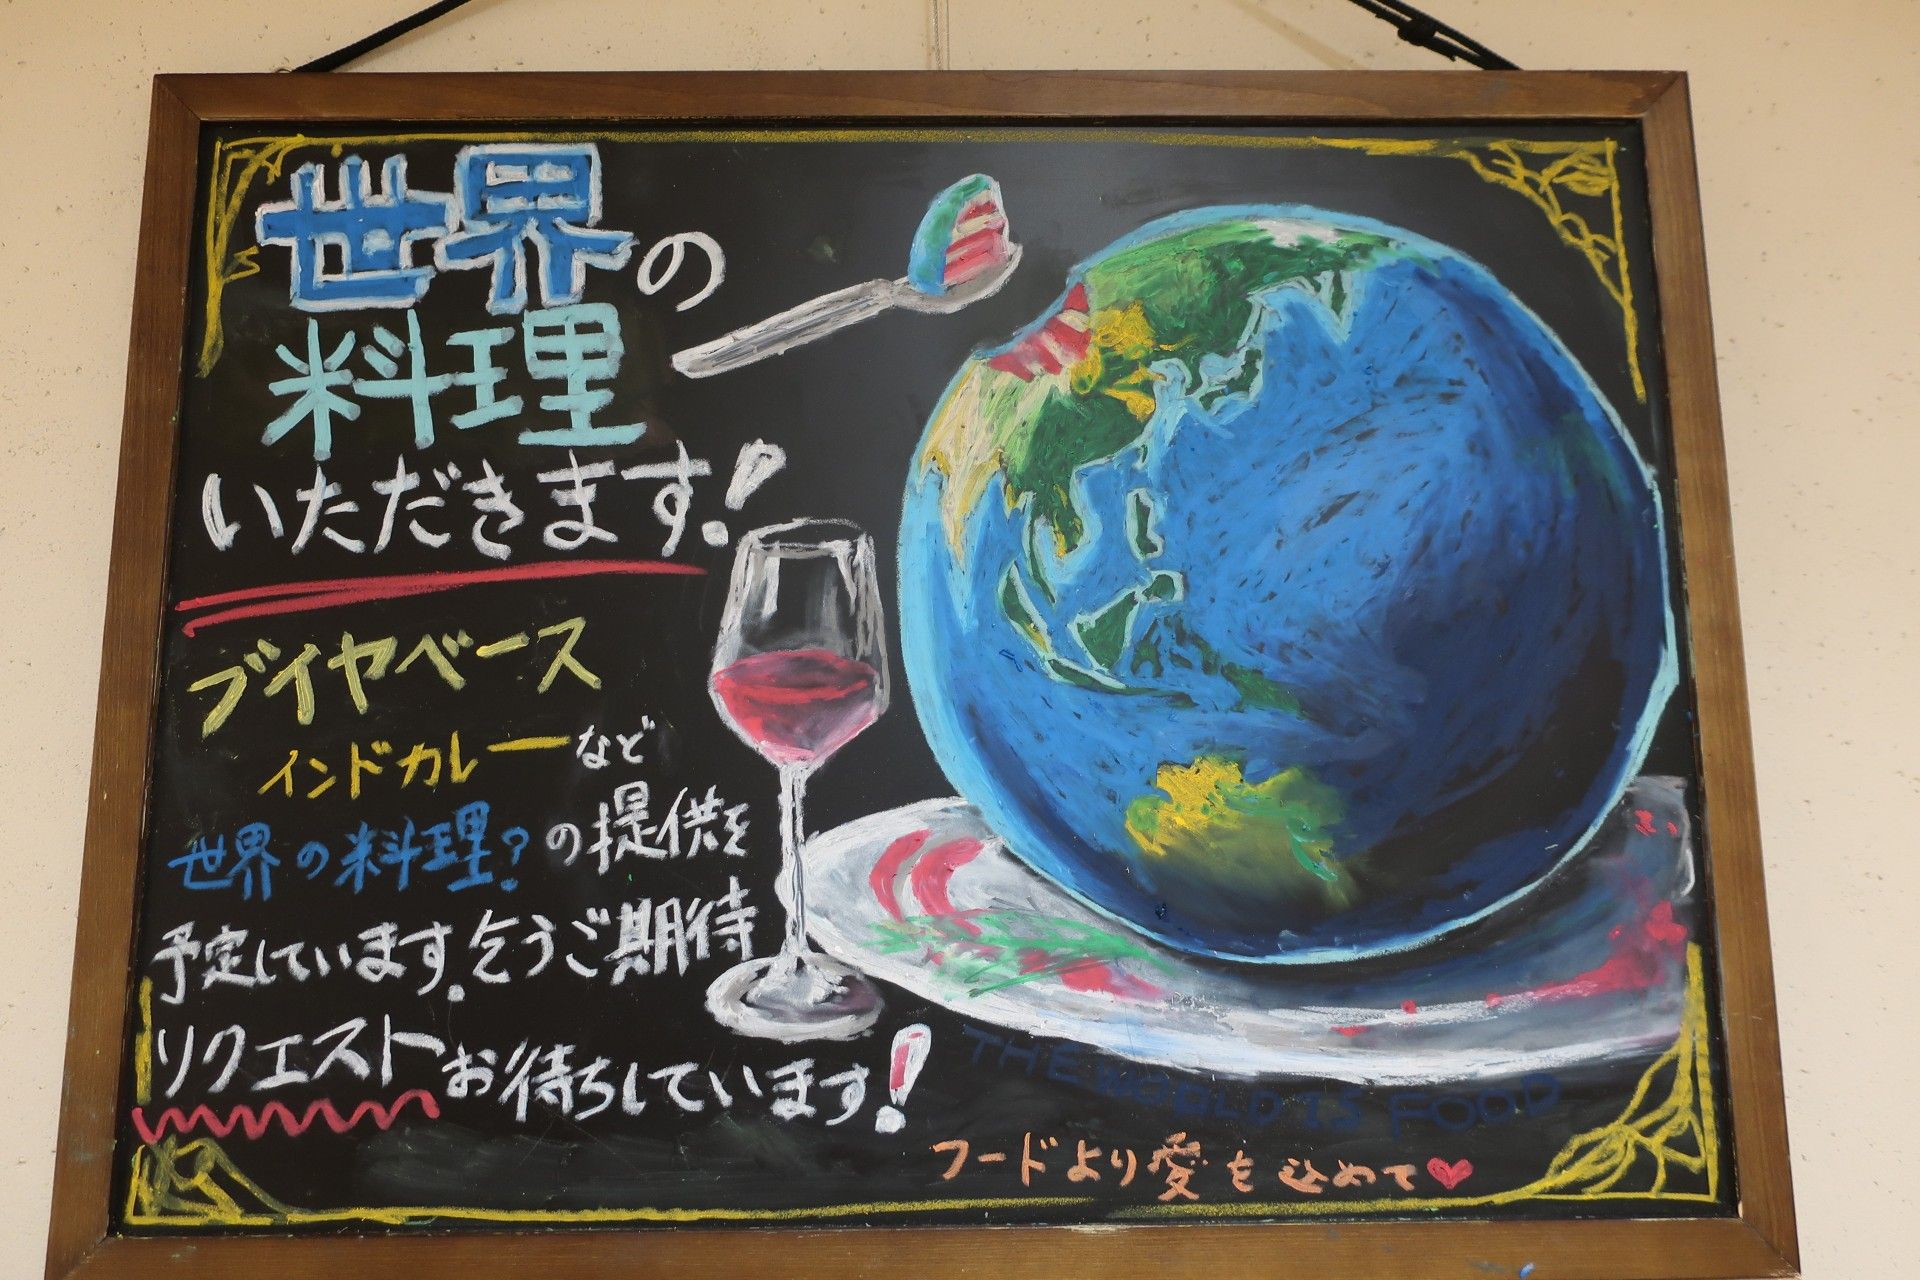 世界の
料理
いただきます!
ブイヤベース
インドカレーなど
世界の料理?の提供を
予定しています。乞うご期待
リクエストお待ちしています!
THE WORLD IS FOOD
フードより愛を込めて♥